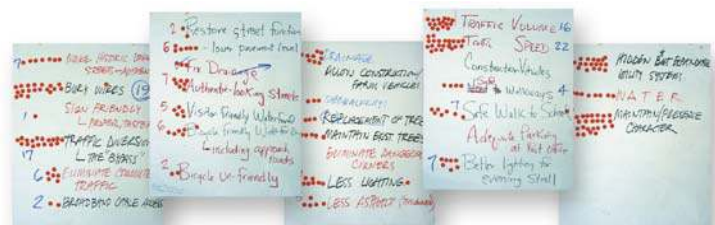 7 MAKE HISTORIC
BURY WIRES 19
1 SIGN FRIENDLY
TRAFFIC DIVERSION
17 THE "BYPASS"
6 ELIMINATE COMMUTER
TRAFFIC
2 BROADBAND CABLE ACCESS
2 Restore street function
6 - lower pavement level
Fix Drainage
7 Authentic-looking streets
5 Visitor friendly Waterford
6 Bicycle friendly
including approach
roads
2 Bicycle un-friendly
DRAINAGE
ALLOW CONSTRUCTION/
FARM VEHICLES
REPLACEMENT OF TREES
MAINTAIN EXIST TREES
ELIMINATE DANGEROUS
CORNERS
LESS LIGHTING
LESS ASPALT
TRAFFIC VOLUME 26
TRAFFIC SPEED 22
Construction Vehicles
Walkways 4
7 Safe Walk to School
Adequate Parking
at Post Office
7 Better lighting for
evening stroll
HIDDEN BUT DEPENDABLE
UTILITY SYSTEMS
WATER
MAINTAIN/PRESERVE
CHARACTER